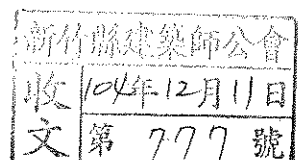 新竹縣建築師公會
收文
104年12月11日
第 777 號